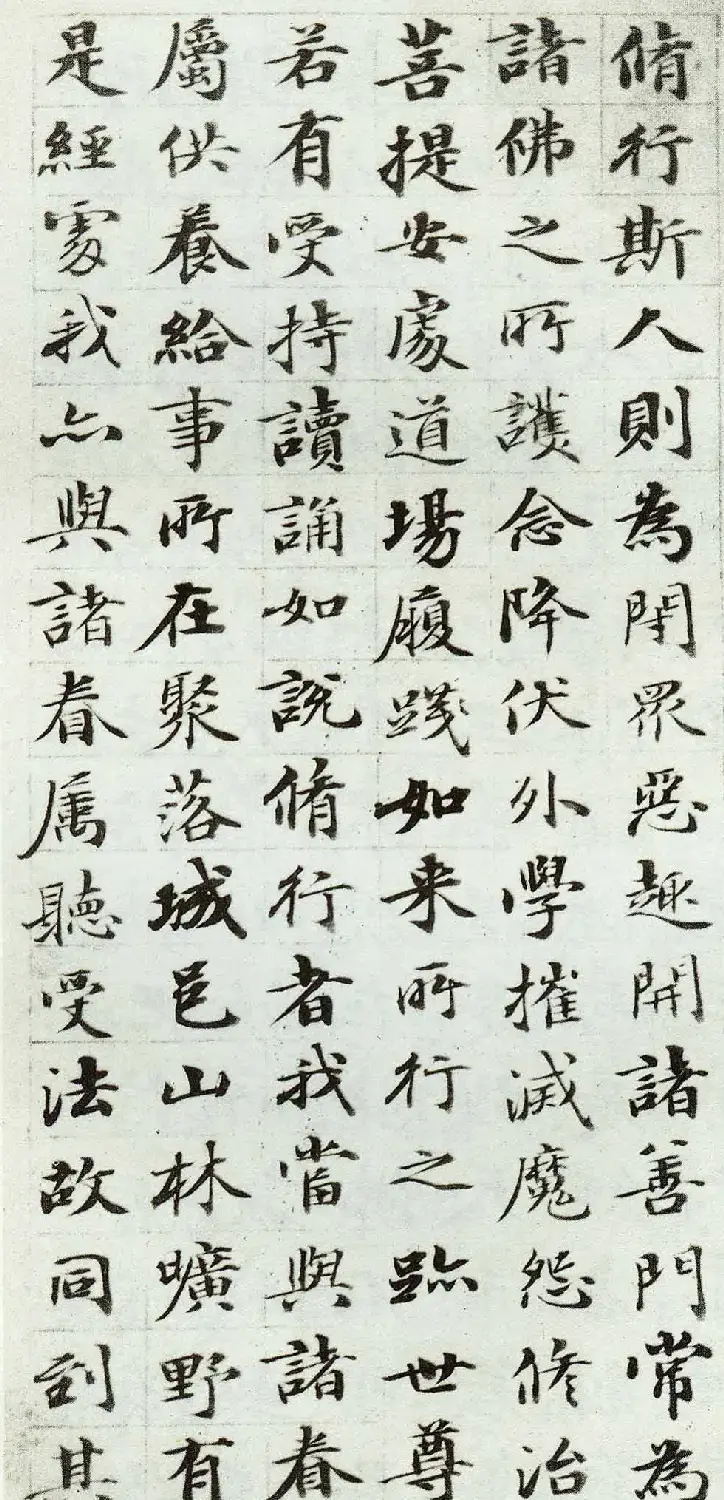 脩行斯人則為閇眾惡趣開諸善門常為
諸佛之所護念降伏外學摧滅魔怨修治
菩提安處道場履踐如来所行之跡世尊
若有受持讀誦如說脩行者我當與諸眷
屬供養給事所在聚落城邑山林曠野有
是經處我亦與諸眷属聽受法故同到其